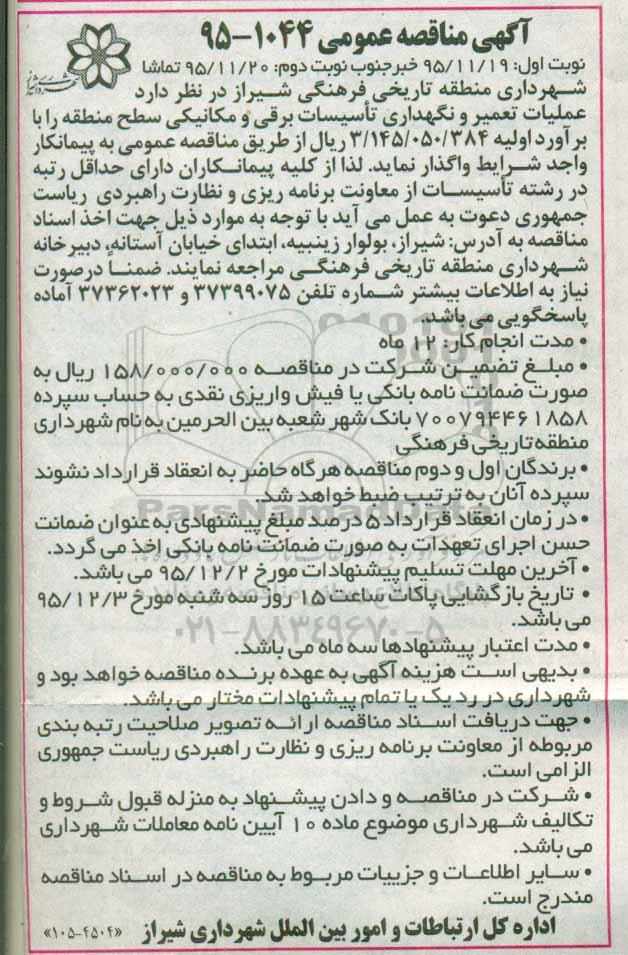 آگهی مناقصه عمومی ۱۰۴۴-۹۵
نوبت اول: ۹۵/۱۱/۱۹ خبر جنوب نوبت دوم: ۹۵/۱۱/۲۰ تماشا
شهرداری منطقه تاریخی فرهنگی شیراز در نظر دارد
عملیات تعمیر و نگهداری تأسیسات برقی و مکانیکی سطح منطقه را با
برآورد اولیه ۳/۱۴۵/۰۵۰/۳۸۴ ریال از طریق مناقصه عمومی به پیمانکار
واجد شرایط واگذار نماید. لذا از کلیه پیمانکاران دارای حداقل رتبه
در رشته تأسیسات از معاونت برنامه ریزی و نظارت راهبردی ریاست
جمهوری دعوت به عمل می آید با توجه به موارد ذیل جهت اخذ اسناد
مناقصه به آدرس: شیراز، بولوار زینبیه، ابتدای خیابان آستانه، دبیرخانه
شهرداری منطقه تاریخی فرهنگی مراجعه نمایند. ضمناً درصورت
نیاز به اطلاعات بیشتر شماره تلفن ۳۷۳۹۹۰۷۵ و ۳۷۳۶۲۰۲۳ آماده
پاسخگویی می باشد.
• مدت انجام کار: ۱۲ ماه
• مبلغ تضمین شرکت در مناقصه ۱۵۸/۰۰۰/۰۰۰ ریال به
صورت ضمانت نامه بانکی یا فیش واریزی نقدی به حساب سپرده
۷۰۰۷۹۴۴۶۱۸۵۸ بانک شهر شعبه بین الحرمین به نام شهرداری
منطقه تاریخی فرهنگی
• برندگان اول و دوم مناقصه هرگاه حاضر به انعقاد قرارداد نشوند
سپرده آنان به ترتیب ضبط خواهد شد.
ParsNamadData
• در زمان انعقاد قرارداد ۵ درصد مبلغ پیشنهادی به عنوان ضمانت
حسن اجرای تعهدات به صورت ضمانت نامه بانکی اخذ می گردد.
• آخرین مهلت تسلیم پیشنهادات مورخ ۹۵/۱۲/۲ می باشد.
• تاریخ بازگشایی پاکات ساعت ۱۵ روز سه شنبه مورخ ۹۵/۱۲/۳
می باشد.
۰۲۱-۸۸۳۴۹۶۷۰-۵
• مدت اعتبار پیشنهادها سه ماه می باشد.
• بدیهی است هزینه آگهی به عهده برنده مناقصه خواهد بود و
شهرداری در رد یک یا تمام پیشنهادات مختار می باشد.
• جهت دریافت اسناد مناقصه ارائه تصویر صلاحیت رتبه بندی
مربوطه از معاونت برنامه ریزی و نظارت راهبردی ریاست جمهوری
الزامی است.
• شرکت در مناقصه و دادن پیشنهاد به منزله قبول شروط و
تکالیف شهرداری موضوع ماده ۱۰ آیین نامه معاملات شهرداری
می باشد.
• سایر اطلاعات و جزییات مربوط به مناقصه در اسناد مناقصه
مندرج است.
اداره کل ارتباطات و امور بین الملل شهرداری شیراز «۱۰۵-۴۵۰۴»